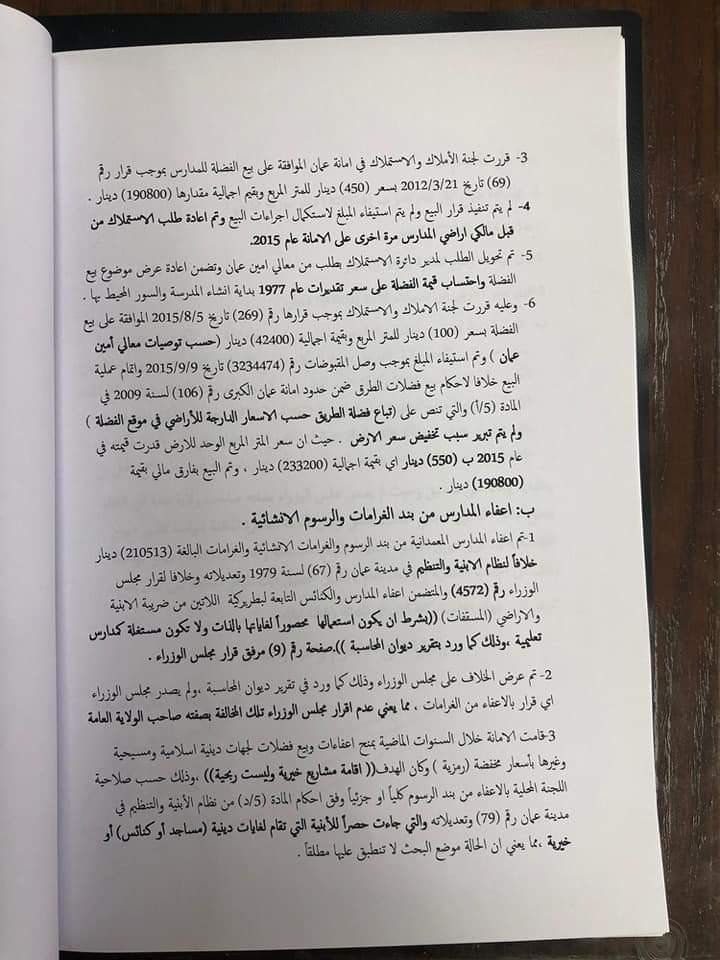 3- قررت لجنة الأملاك والاستملاك في امانة عمان الموافقة على بيع الفضلة للمدارس بموجب قرار رقم
(69) تاريخ 2012/3/21 بسعر (450) دينار للمتر المربع وبقيم اجمالية مقدارها (190800) دينار .
4- لم يتم تنفيذ قرار البيع ولم يتم استيفاء المبلغ لاستكمال اجراءات البيع وتم اعادة طلب الاستملاك من
قبل مالكي اراضي المدارس مرة اخرى على الامانة عام 2015.
5- تم تحويل الطلب لمدير دائرة الاستملاك بطلب من معالي امين عمان وتضمن اعادة عرض موضوع بيع
الفضلة واحتساب قيمة الفضلة على سعر تقديرات عام 1977 بداية انشاء المدرسة والسور المحيط بها .
6- وعليه قررت لجنة الاملاك والاستملاك بموجب قرارها رقم (269) تاريخ 2015/8/5 الموافقة على بيع
الفضلة بسعر (100) دينار للمتر المربع وبقيمة اجمالية (42400) دينار (حسب توصيات معالي أمين
عمان ) وتم استيفاء المبلغ بموجب وصل المقبوضات رقم (3234474) تاريخ 2015/9/9 واتمام عملية
البيع خلافا لاحكام بيع فضلات الطرق ضمن حدود امانة عمان الكبرى رقم (106) لسنة 2009 في
المادة (5/أ) والتي تنص على (تباع فضلة الطريق حسب الاسعار الدارجة للأراضي في موقع الفضلة )
ولم يتم تبرير سبب تخفيض سعر الارض . حيث ان سعر المتر المربع الوحد للارض قدرت قيمته في
عام 2015 ب (550) دينار اي بقيمة اجمالية (233200) دينار ، وتم البيع بفارق مالي بقيمة
(190800) دينار .
ب: اعفاء المدارس من بند الغرامات والرسوم الانشائية .
1-تم اعفاء المدارس المعمدانية من بند الرسوم والغرامات الانشائية والغرامات البالغة (210513) دينار
خلافاً لنظام الابنية والتنظيم في مدينة عمان رقم (67) لسنة 1979 وتعديلاته وخلافا لقرار مجلس
الوزراء رقم (4572) والمتضمن اعفاء المدارس والكنائس التابعة لبطريركية اللاتين من ضريبة الابنية
والاراضي (المسقفات) ((بشرط ان يكون استعمالها محصوراً لغاياتها بالذات ولا تكون مستغلة كمدارس
تعليمية ،وذلك كما ورد بتقرير ديوان المحاسبة )).صفحة رقم (9) مرفق قرار مجلس الوزراء .
2- تم عرض الخلاف على مجلس الوزراء وذلك كما ورد في تقرير ديوان المحاسبة ،ولم يصدر مجلس الوزراء
اي قرار بالاعفاء من الغرامات ، مما يعني عدم اقرار مجلس الوزراء تلك المخالفة بصفته صاحب الولاية العامة
3-قامت الامانة خلال السنوات الماضية بمنح اعفاءات وبيع فضلات لجهات دينية اسلامية ومسيحية
وغيرها بأسعار مخفضة (رمزية ) وكان الهدف(( اقامة مشاريع خيرية وليست ربحية)) ،وذلك حسب صلاحية
اللجنة المحلية بالاعفاء من بند الرسوم كلياً او جزئياً وفق احكام المادة (5/د) من نظام الأبنية والتنظيم في
مدينة عمان رقم (79) وتعديلاته والتي جاءت حصراً للأبنية التي تقام لغايات دينية (مساجد أو كنائس) أو
خيرية ،مما يعني ان الحالة موضع البحث لا تنطبق عليها مطلقاً .